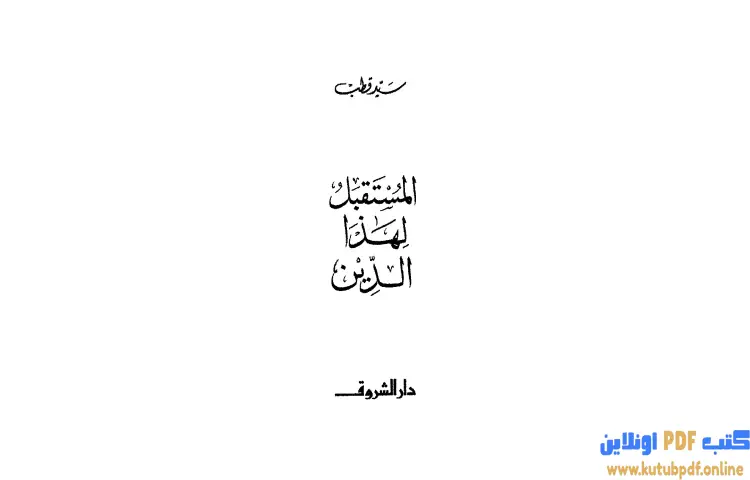 سيد قطب
المُسْتَقبَلُ
لِهَذَا
الدِّيْن
دار الشروق
كتب PDF اونلاين
www.kutubpdf.online